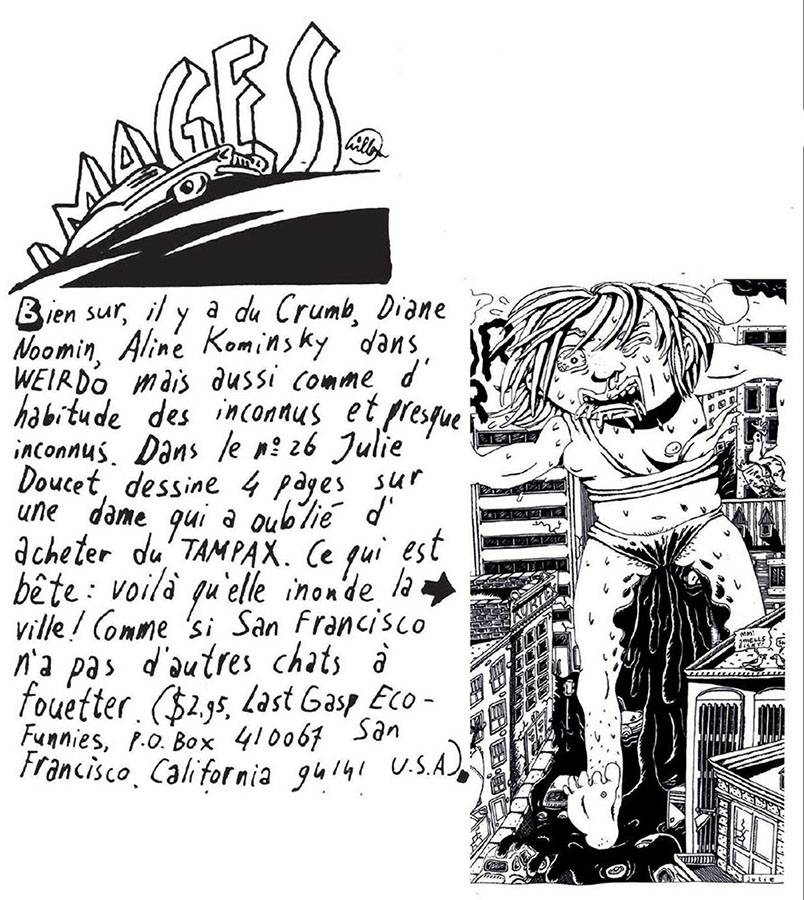 IMAGES
Willem
Bien sur, il y a du Crumb, Diane
Noomin, Aline Kominsky dans
WEIRDO mais aussi comme d'
habitude des inconnus et presque
inconnus. Dans le nº 26 Julie
Doucet dessine 4 pages sur
une dame qui a oublié d'
acheter du TAMPAX. Ce qui est
bête : voilà qu'elle inonde la
ville! Comme si San Francisco
n'a pas d'autres chats à
fouetter. ($2,95, Last Gasp Eco-
Funnies, P.O. Box 410067 San
Francisco, California 94141 U.S.A).
MM!
SMELLS
julie